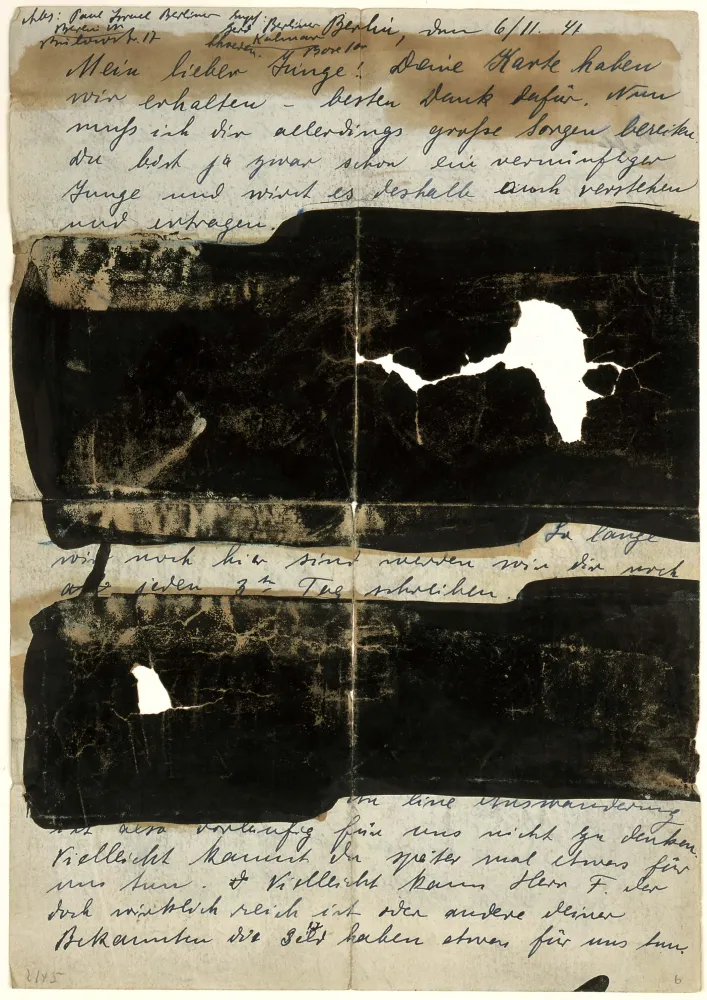 Abs: Paul Israel Berliner Empf: Berliner Berlin, den 6/11. 41
Berlin W Gert Kalmar
Bülowstr. 17 Schweden. Box 100
Mein lieber Junge! Deine Karte haben
wir erhalten – besten Dank dafür. Nun
muß ich dir allerdings große Sorgen bereiten.
Du bist ja zwar schon ein vernünftiger
Junge und wirst es deshalb auch verstehen
und ertragen.
So lange
wir noch hier sind werden wir dir noch
jeden 3ten Tag schreiben.
An eine Auswanderung
ist also vorläufig für uns nicht zu denken.
Vielleicht kannst du später mal etwas für
uns tun. Vielleicht kann Herr F. der
doch wirklich reich ist oder andere deiner
Bekannten die Geld haben etwas für uns tun.
6